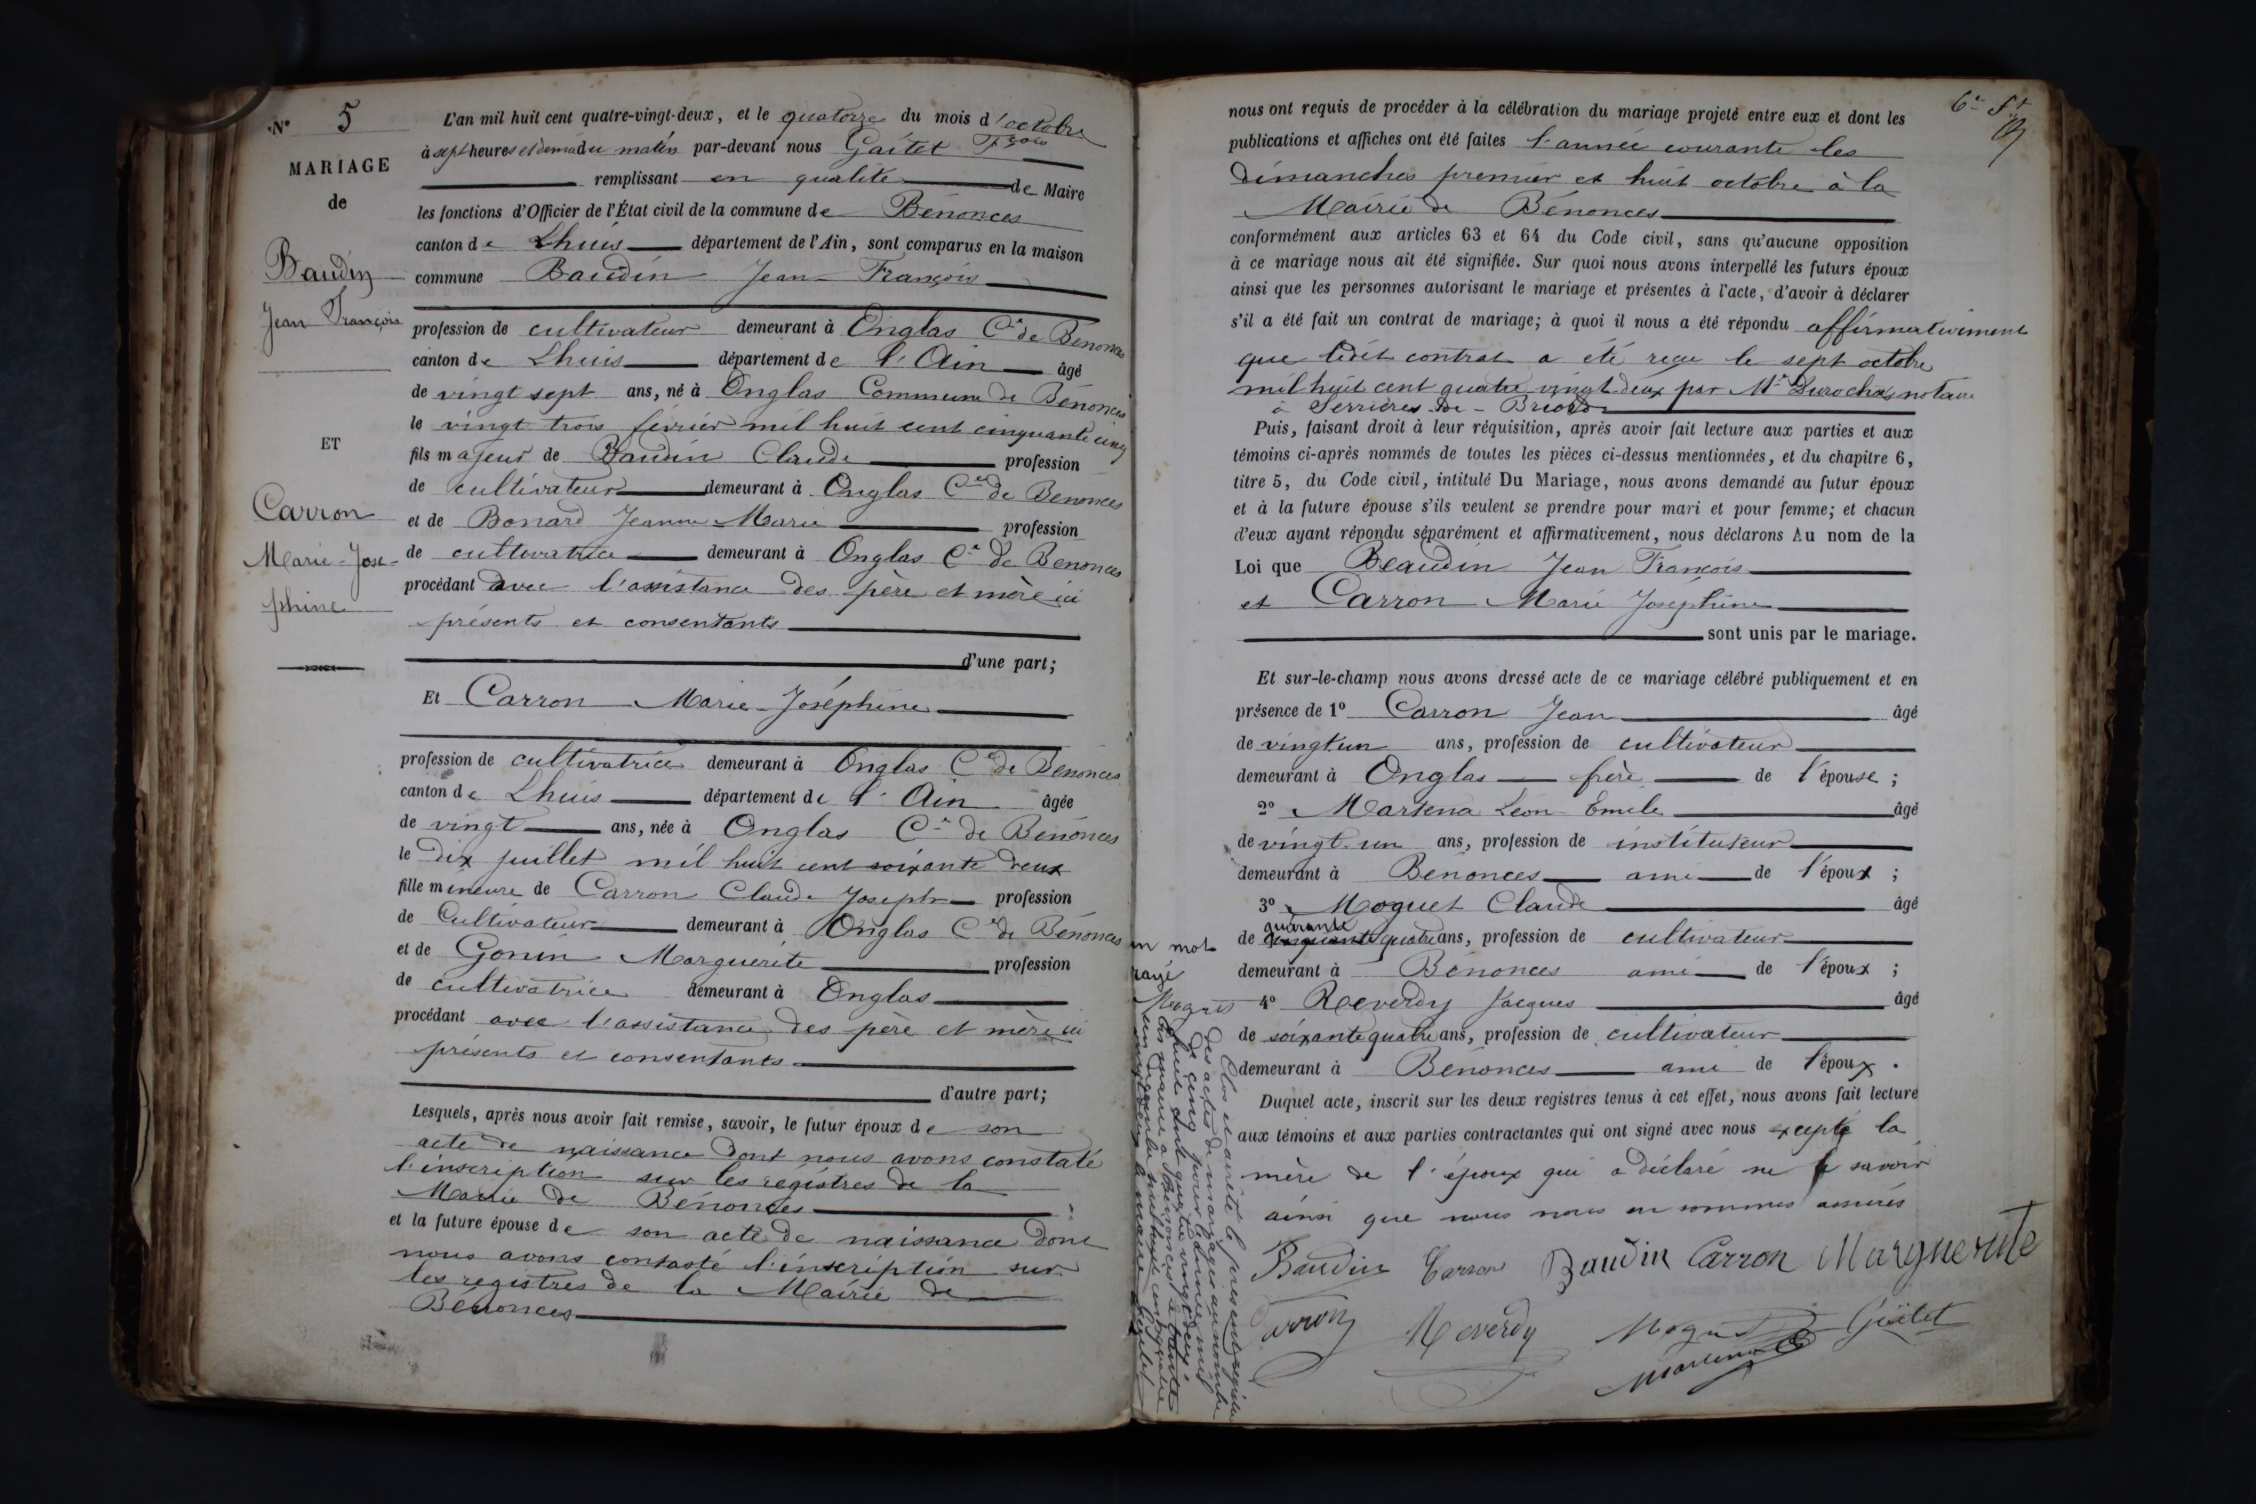 N° 5
MARIAGE
de
Baudin
Jean François
ET
Carron
Marie-José-
phine
L'an mil huit cent quatre-vingt-deux, et le quatorze du mois d'octobre
à sept heures et demi du matin par-devant nous Gaîtet Fçois
remplissant en qualité de Maire
les fonctions d'Officier de l'État civil de la commune de Bénonces
canton de Lhuis département de l'Ain, sont comparus en la maison
commune Baudin Jean François
profession de cultivateur demeurant à Onglas Cne de Bénonces
canton de Lhuis département de l'Ain âgé
de vingt sept ans, né à Onglas Commune de Bénonces
le vingt trois février mil huit cent cinquante cinq
fils majeur de Baudin Claude profession
de cultivateur demeurant à Onglas Cne de Bénonces
et de Bonard Jeanne Marie profession
de cultivatrice demeurant à Onglas Cne de Bénonces
procédant avec l'assistance des père et mère ici
présents et consentants
d'une part;
Et Carron Marie-Joséphine
profession de cultivatrice demeurant à Onglas Cne de Bénonces
canton de Lhuis département de l'Ain âgée
de vingt ans, née à Onglas Cne de Bénonces
le dix juillet mil huit cent soixante deux
fille mineure de Carron Claude Joseph profession
de Cultivateur demeurant à Onglas Cne de Bénonces
et de Gonin Marguerite profession
de cultivatrice demeurant à Onglas
procédant avec l'assistance des père et mère ici
présents et consentants
d'autre part;
Lesquels, après nous avoir fait remise, savoir, le futur époux de son
acte de naissance dont nous avons constaté
l'inscription sur les registres de la
Mairie de Bénonces
et la future épouse de son acte de naissance dont
nous avons contasté l'inscription sur
les registres de la Mairie de
Bénonces
nous ont requis de procéder à la célébration du mariage projeté entre eux et dont les
publications et affiches ont été faites l'année courante les
dimanches premier et huit octobre à la
Mairie de Bénonces
conformément aux articles 63 et 64 du Code civil, sans qu'aucune opposition
à ce mariage nous ait été signifiée. Sur quoi nous avons interpellé les futurs époux
ainsi que les personnes autorisant le mariage et présentes à l'acte, d'avoir à déclarer
s'il a été fait un contrat de mariage; à quoi il nous a été répondu affirmativement
que ledit contrat a été reçu le sept octobre
mil huit cent quatre vingt deux par Me notaire
à Serrières-de-Briord
Puis, faisant droit à leur réquisition, après avoir fait lecture aux parties et aux
témoins ci-après nommés de toutes les pièces ci-dessus mentionnées, et du chapitre 6,
titre 5, du Code civil, intitulé Du Mariage, nous avons demandé au futur époux
et à la future épouse s'ils veulent se prendre pour mari et pour femme; et chacun
d'eux ayant répondu séparément et affirmativement, nous déclarons Au nom de la
Loi que Beaudin Jean François
et Carron Marie Joséphine
sont unis par le mariage.
Et sur-le-champ nous avons dressé acte de ce mariage célébré publiquement et en
présence de 1° Carron Jean âgé
de vingt un ans, profession de cultivateur
demeurant à Onglas frère de l'épouse;
2° Martena Léon Emile âgé
de vingt-un ans, profession de instituteur
demeurant à Bénonces ami de l'époux;
3° Moguet Claude âgé
quarante
de cinquante quatre ans, profession de cultivateur
demeurant à Bénonces ami de l'époux;
4° Reverdy Jacques âgé
de soixante quatre ans, profession de cultivateur
demeurant à Bénonces ami de l'époux.
Duquel acte, inscrit sur les deux registres tenus à cet effet, nous avons fait lecture
aux témoins et aux parties contractantes qui ont signé avec nous excepté la
mère de l'époux qui a déclaré ne le savoir
ainsi que nous nous en sommes assurés
Baudin Carron Baudin Carron Marguerite
Carron Reverdy Moguet Gaîtet
Martena
un mot
rayé
Clos et arrêté le présent registre
des actes de mariage au nombre
de cinq pour l'année mil
huit cent quatre vingt deux